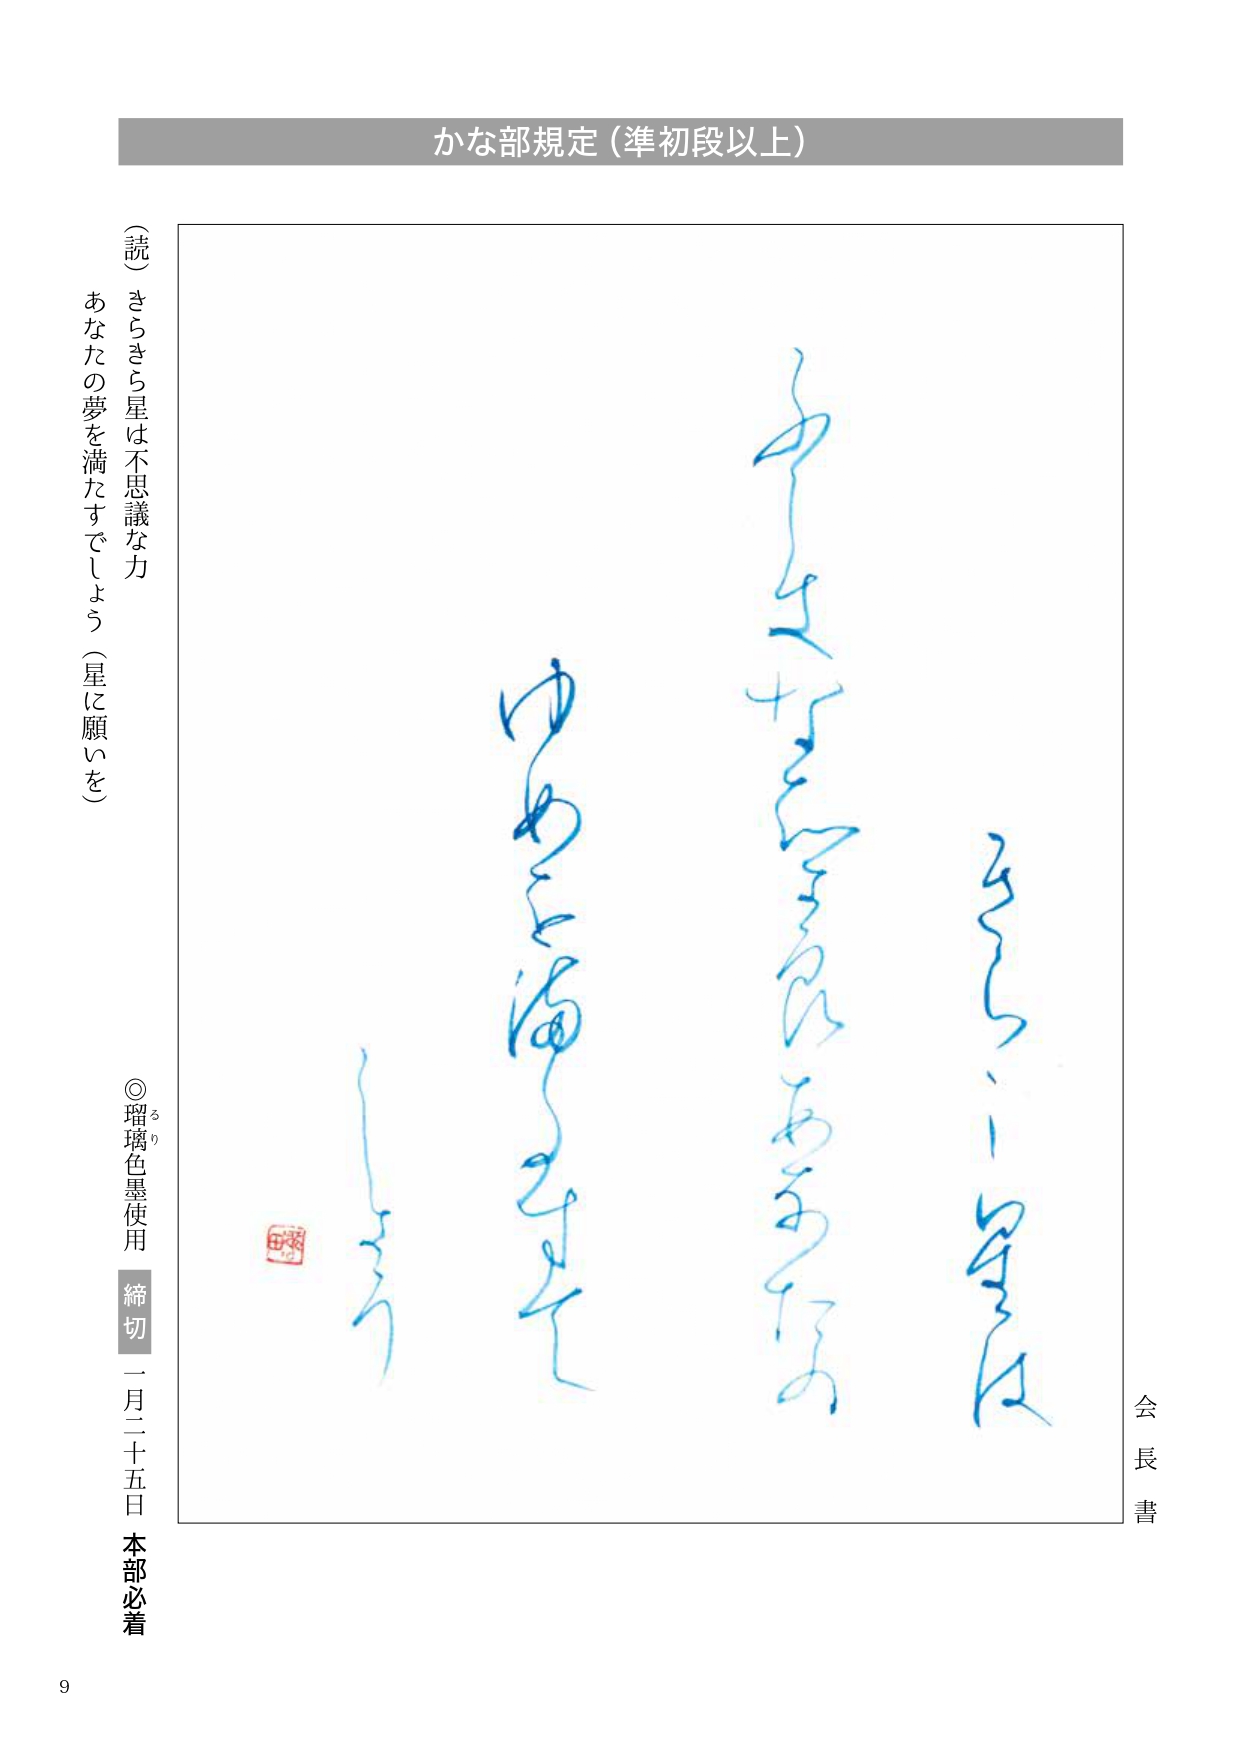 かな部規定（準初段以上）
会長書
きらきら星は
ゆめを満たすて
しょう
（読）きらきら星は不思議な力
あなたの夢を満たすでしょう（星に願いを）
◎瑠璃色墨使用 締切 一月二十五日 本部必着
るり
9